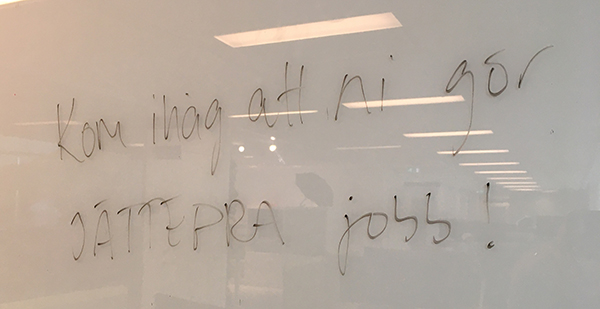 Kom ihåg att ni gör
JÄTTEBRA jobb!